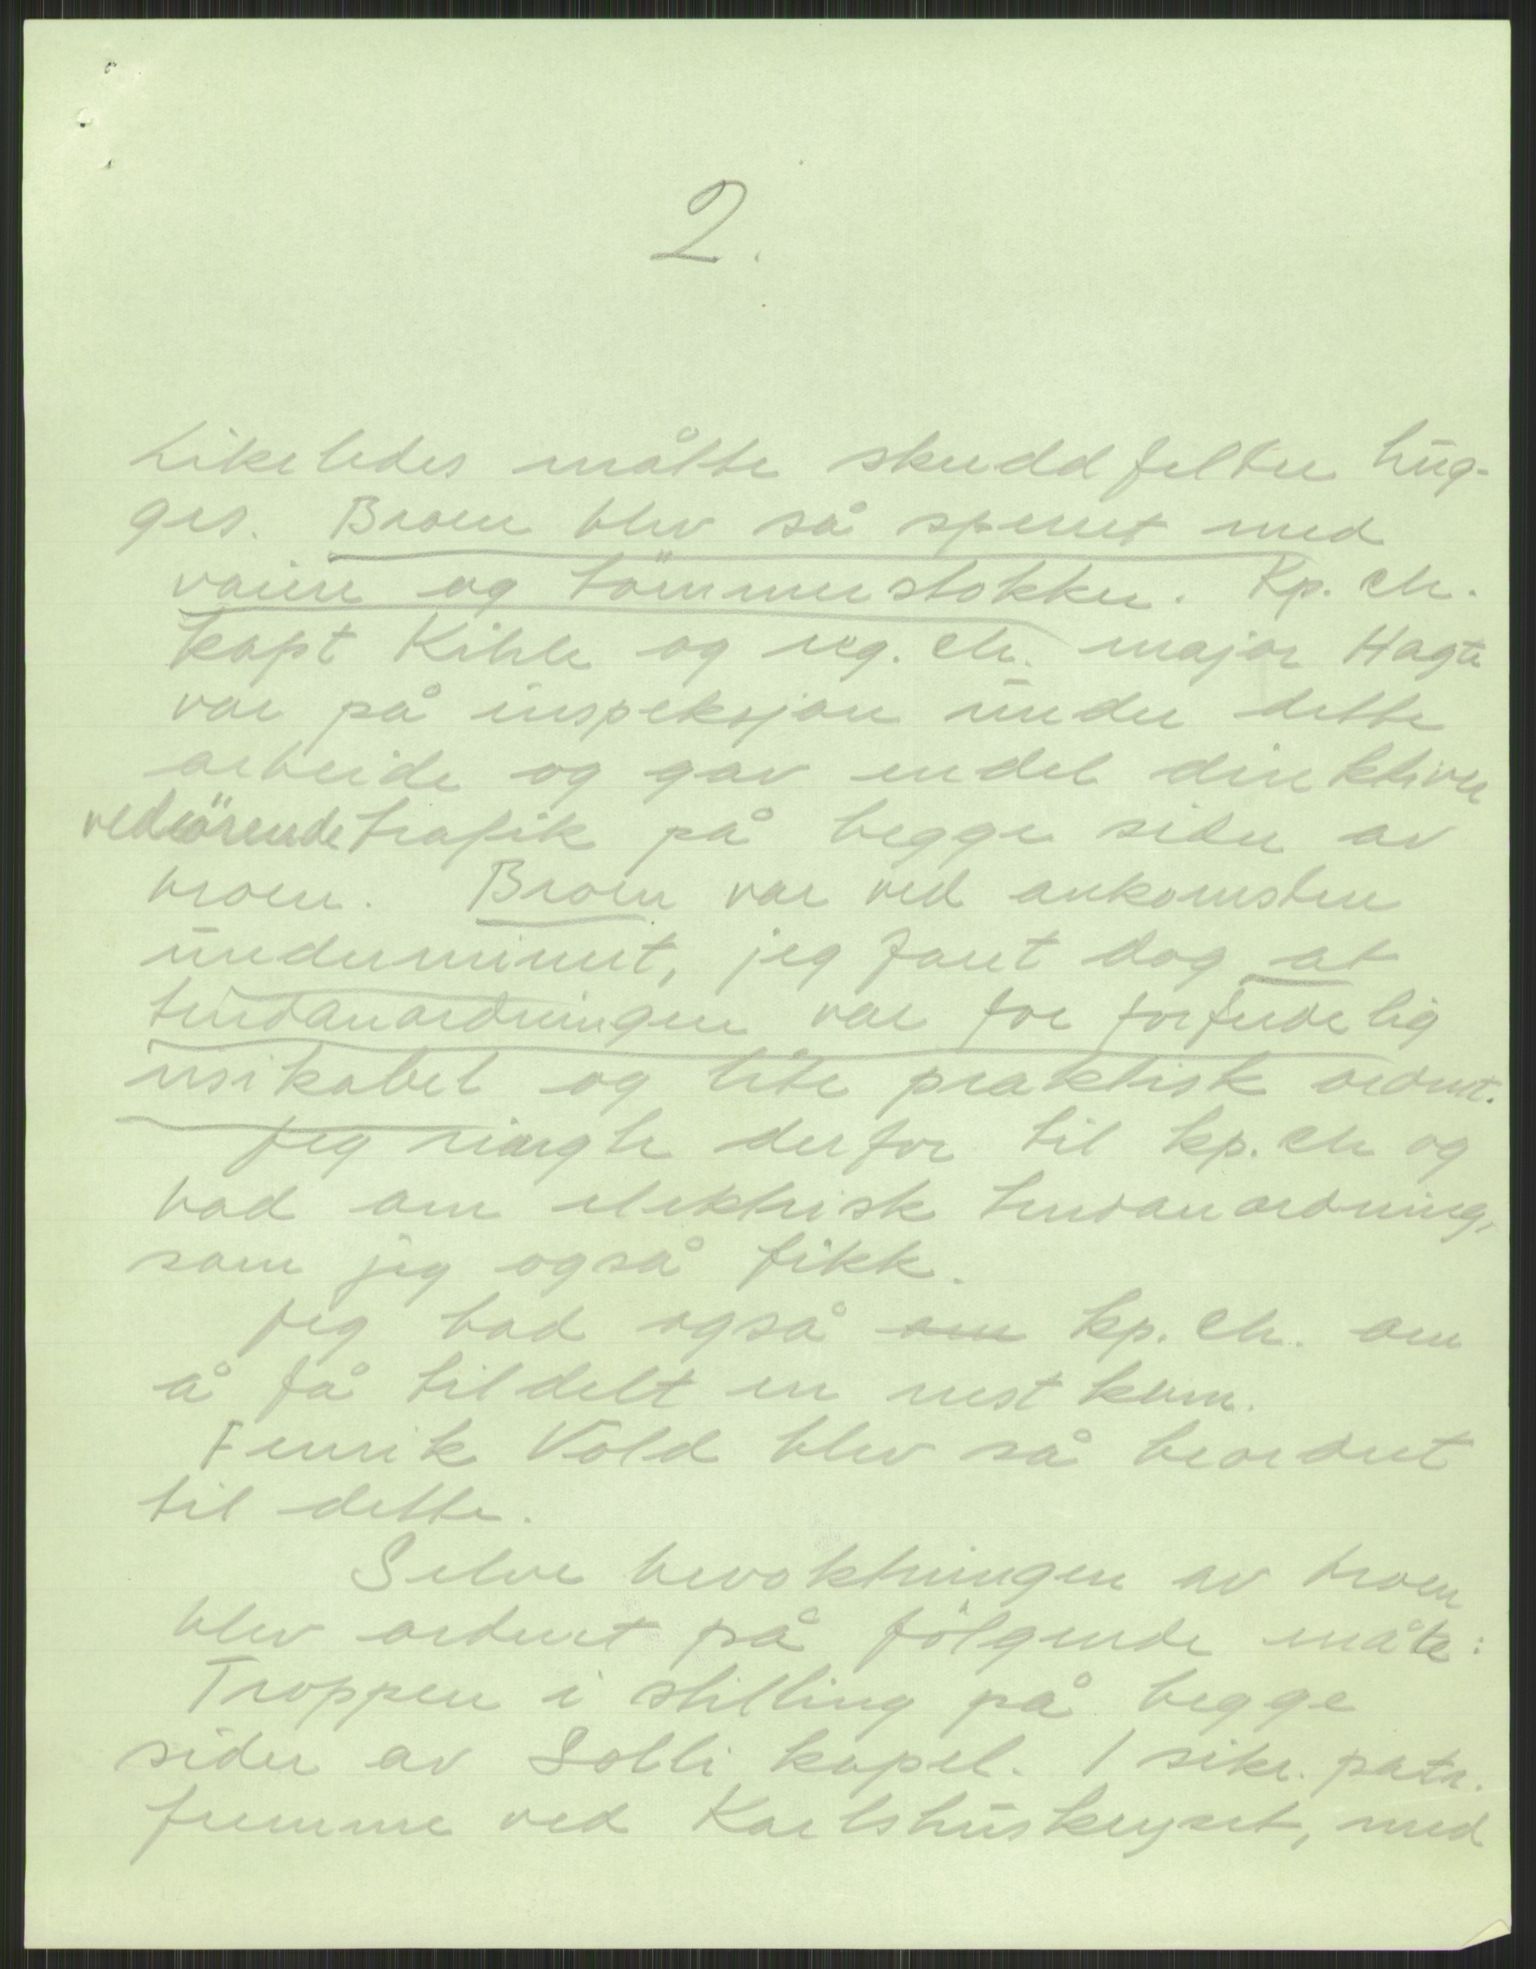 2.
Likeledes måtte skuddfelter hug-
ges. Broen blev så sperret med
vaiere og tömmerstokker. Kp. ch.
kapt Kihle og reg. ch. major Hagte
var på inspeksjon under dette
arbeide og gav endel direktiver
vedrörende trafik på begge sider av
broen. Broen var ved ankomsten
underminert, jeg fant dog at
tennanordningen var for forferdelig
risikabel og lite praktisk ordnet.
Jeg ringte derfor til kp. ch og
bad om elektrisk tennanordning,
som jeg også fikk.
Jeg bad også om kp. ch. om
å få tildelt en nest kom.
Fenrik Vold blev så beordret
til dette.
Selve bevoktningen av broen
blev ordnet på fölgende måte:
Troppen i stilling på begge
sider av Solli kapel. 1 sikr. patr.
fremme ved Karlshuskrysset, med